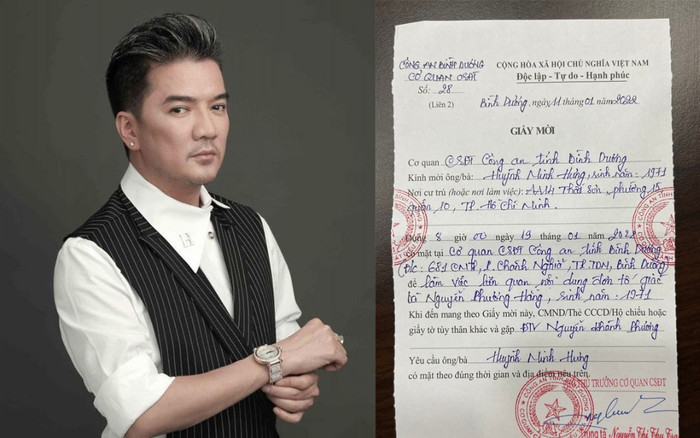 CÔNG AN BÌNH DƯƠNG
CƠ QUAN CSĐT
Số: 28
(Liên 2)
CỘNG HÒA XÃ HỘI CHỦ NGHĨA VIỆT NAM
Độc lập - Tự do - Hạnh phúc
Bình Dương, ngày 11 tháng 01 năm 2022
GIẤY MỜI
Cơ quan CSĐT Công an tỉnh Bình Dương
Kính mời ông/bà: Huỳnh Minh Hưng, sinh năm: 1971
Nơi cư trú (hoặc nơi làm việc): Thất Sơn, phường 15,
quận 10, TP. Hồ Chí Minh.
Đúng 8 giờ 00 ngày 19 tháng 01 năm 2022
có mặt tại Cơ quan CSĐT Công an tỉnh Bình Dương
(Đ/c: 681 CMT8, P. Chánh Nghĩa, TP. TDM, Bình Dương)
để làm việc liên quan nội dung đơn tố giác
bà Nguyễn Phương Hằng, sinh năm: 1971
Khi đến mang theo Giấy mời này, CMND/Thẻ CCCD/Hộ chiếu hoặc
giấy tờ tùy thân khác và gặp ĐTV Nguyễn Khánh Phương
Yêu cầu ông/bà Huỳnh Minh Hưng
có mặt theo đúng thời gian và địa điểm nêu trên.
THỦ TRƯỞNG CƠ QUAN CSĐT